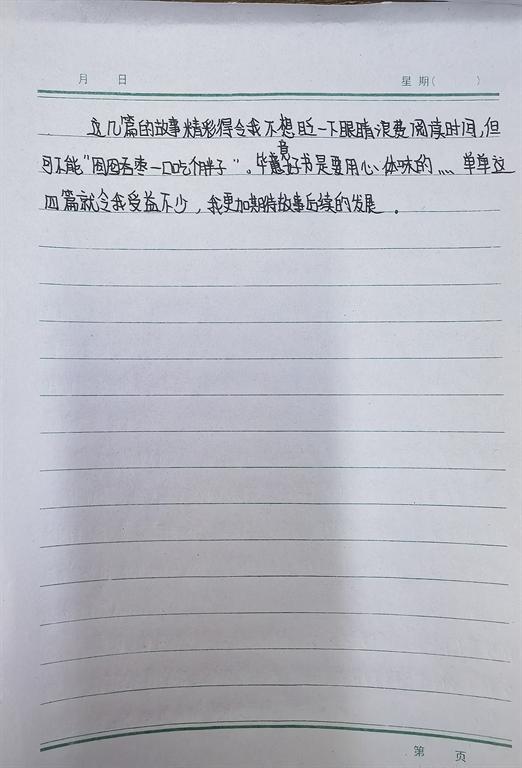 月 日 星期( )
这几篇的故事精彩得令我不想眨一下眼睛浪费阅读时间,但
可不能"囫囵吞枣一口吃个胖子"。毕竟好书是要用心体味的……单单这
四篇就令我受益不少,我更加期待故事后续的发展。
第 页